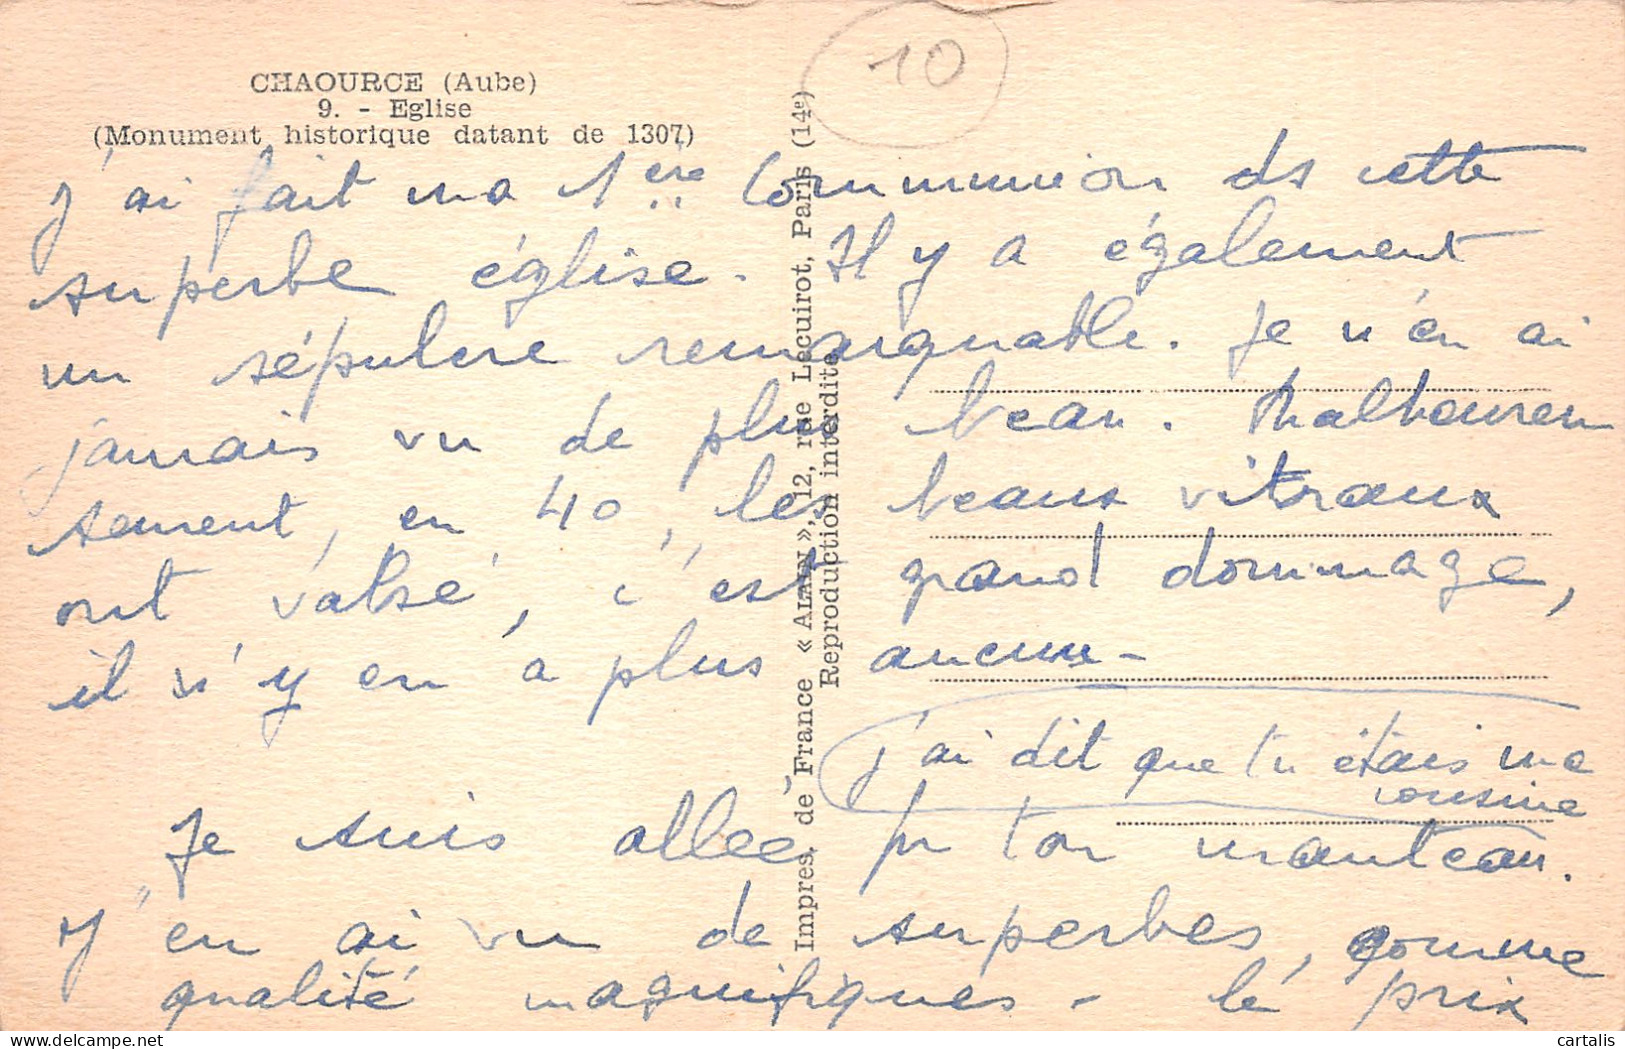 10
CHAOURCE (Aube)
9. - Eglise
(Monument historique datant de 1307)
J'ai fait ma 1ère Communion ds cette
superbe église. Il y a également
un sépulcre remarquable. Je n'en ai
jamais vu de plus beau. Malheureu
sement, en 40, les beaux vitraux
ont valsé, c'est grand dommage,
il n'y en a plus aucun -
j'ai dit que tu étais ma
cousine
Je suis allée pr ton manteau.
J'en ai vu de superbes, comme
qualité magnifiques - le prix
Impres. de France « ALAIN », 12, rue Lecuirot, Paris (14e)
Reproduction interdite
cartalis.com